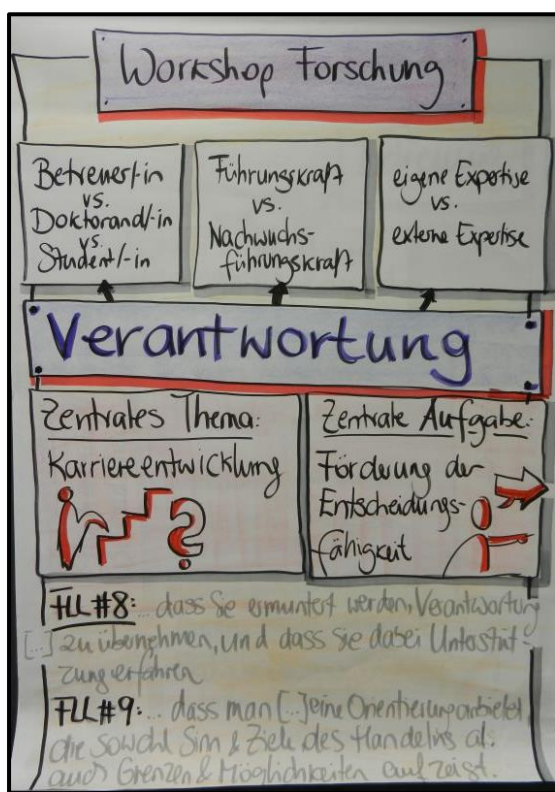 Workshop Forschung
Betreuer/-in
vs.
Doktorand/-in
vs.
Student/-in
Führungskraft
vs.
Nachwuchs-
führungskraft
eigene Expertise
vs.
externe Expertise
Verantwortung
Zentrales Thema:
Karriereentwicklung
Zentrale Aufgabe:
Förderung der
Entscheidungs-
fähigkeit
FLL #8: ... dass Sie ermuntert werden, Verantwortung
[...] zu übernehmen, und dass sie dabei Unterstüt-
zung erfahren
FLL #9: ... dass man [...] eine Orientierung anbietet,
die sowohl Sinn & Ziele des Handelns als
auch Grenzen & Möglichkeiten aufzeigt.